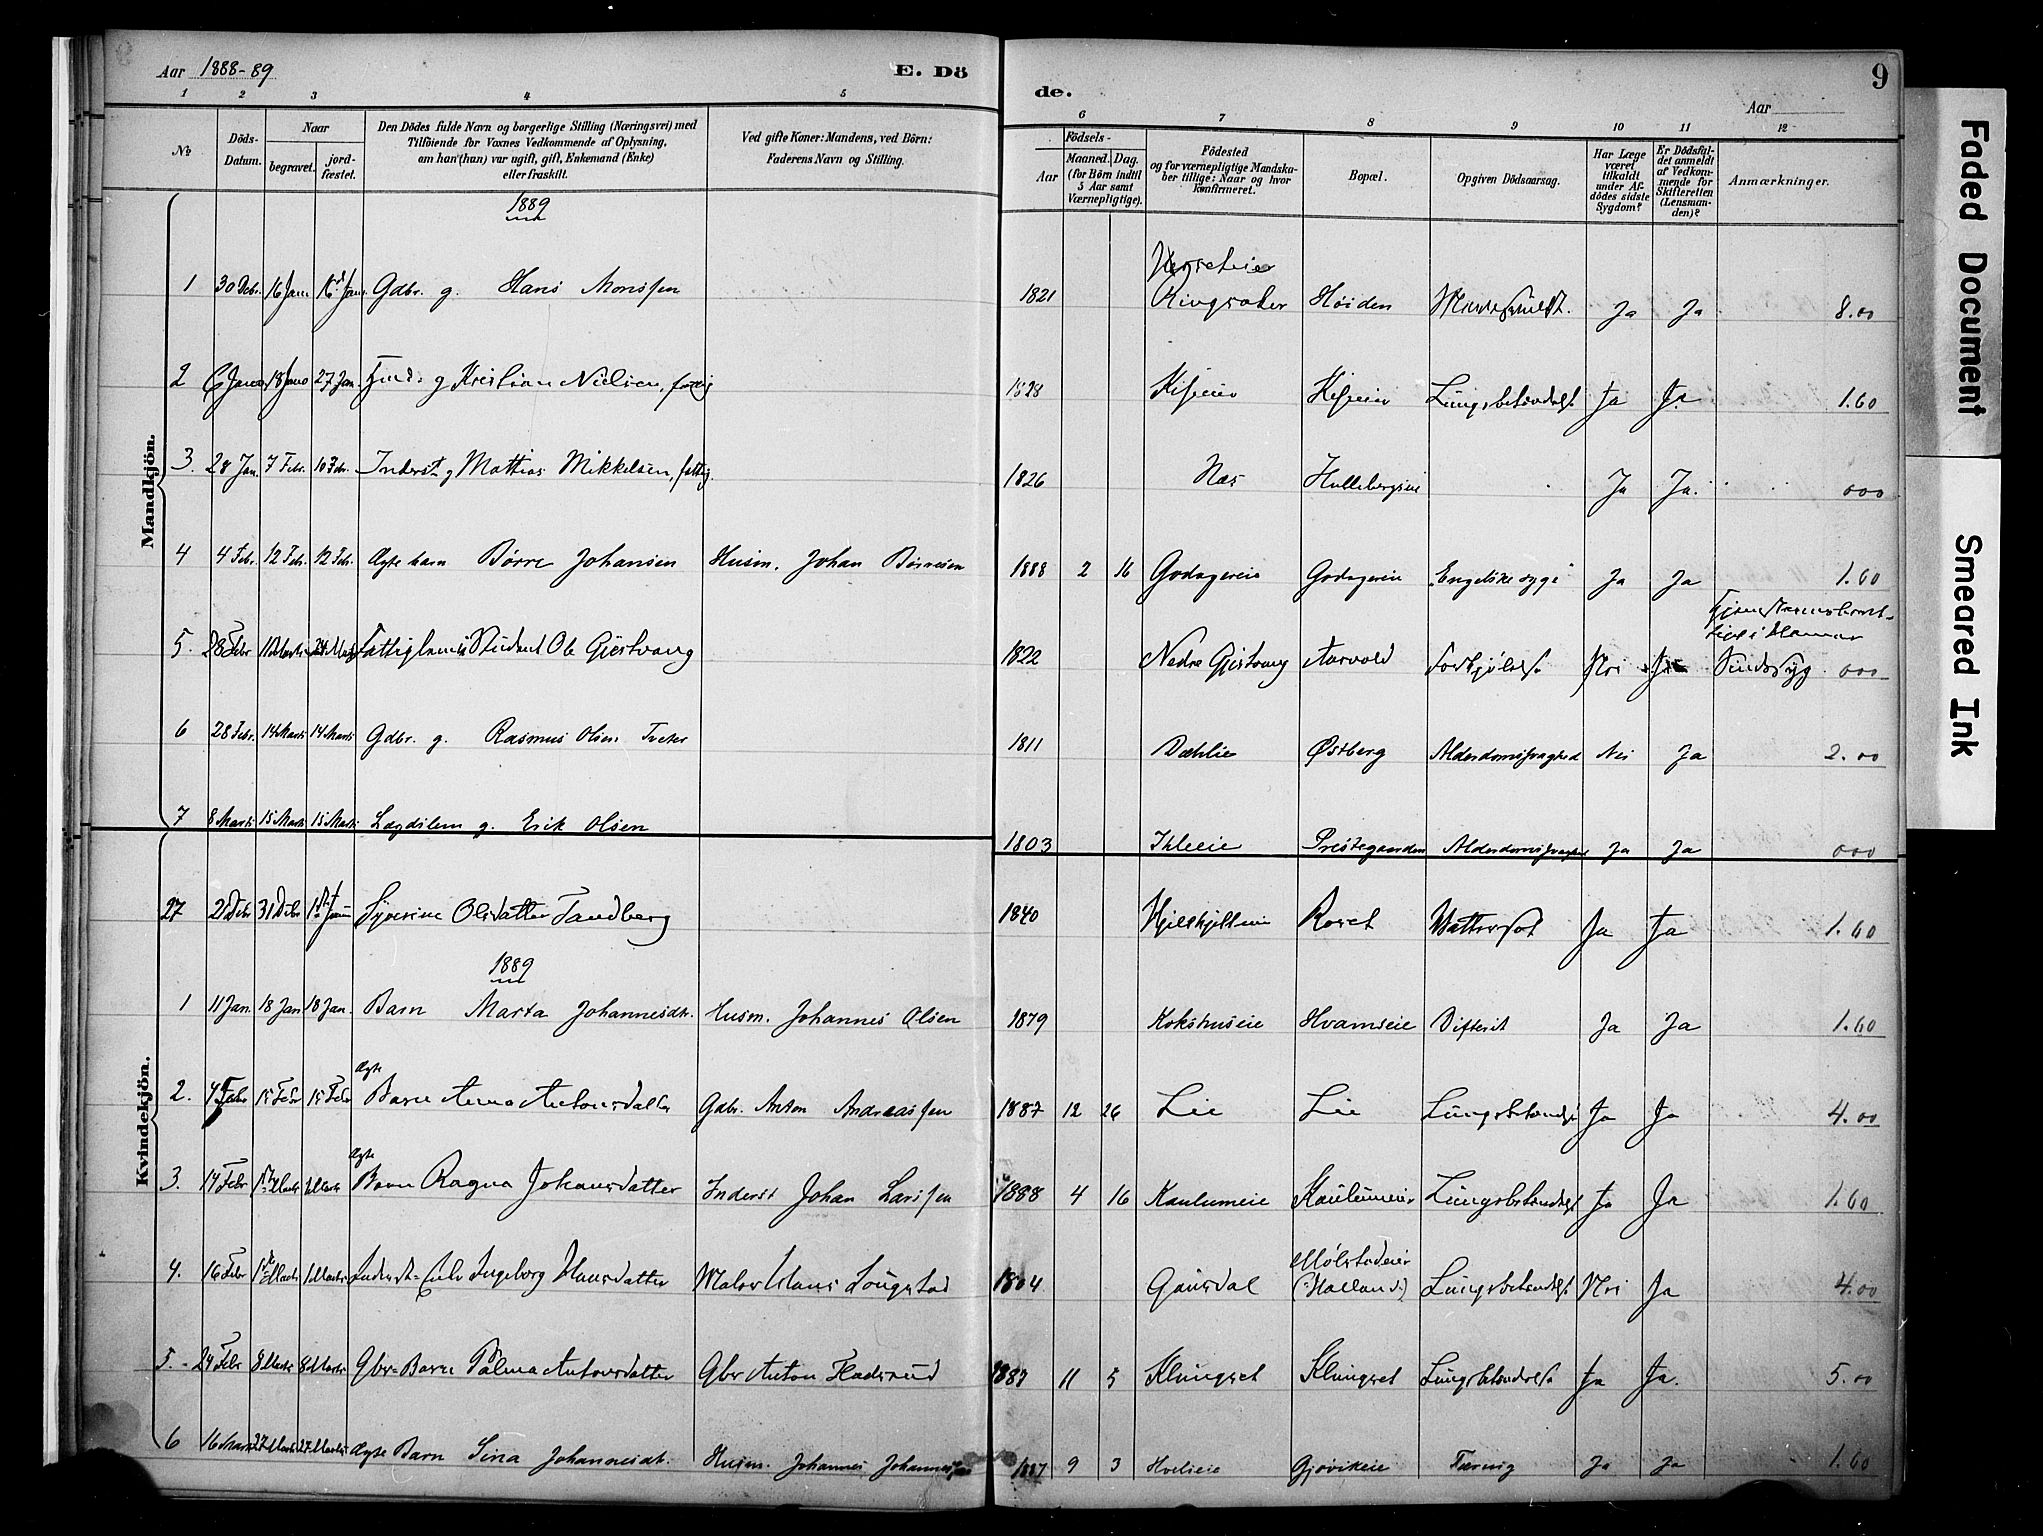 Aar 1888-89
E. Dö
de.
9
Aar
1 2 3 4 5 6 7 8 9 10 11 12
№
Döds-Datum.
Naar
begravet.
jord-fæstet.
Den Dödes fulde Navn og borgerlige Stilling (Næringsvei) med
Tilföiende for Voxnes Vedkommende af Oplysning,
om han (hun) var ugift, gift, Enkemand (Enke)
eller fraskilt.
Ved gifte Koner: Mandens, ved Börn:
Faderens Navn og Stilling.
Födsels-
Aar
Maaned. Dag.
(for Börn indtil
5 Aar samt
Værnepligtige).
Födested
og for værnepligtige Mandska-
ber tillige: Naar og hvor
konfirmeret.
Bopæl.
Opgiven Dödsaarsag.
Har Læge
været
tilkaldt
under Af-
dödes sidste
Sygdom?
Er Dödsfal-
det anmeldt
af Vedkom-
mende for
Skifteretten
(Lensman-
den)?
Anmærkninger.
Mandkjön.
1889
1 30 Debr. 16 Jan 16 Jan. Gdbr. g. Hans Monssen 1821 Ringsaker Høiden Ja Ja 8.00
2 6 Jan 18 Jan 27 Jan. g Kristian Nielsen, fattig 1828 Kiseie Kiseie Lungebetændelse Ja Ja 1.60
3. 28 Jan. 7 Febr. 10 Febr. Inderst g Mathias Mikkelsen, fattig. 1826 Næs Hullebergseie Ja Ja. 000
4 4 Febr. 12 Febr. 12 Febr. Ægte barn Børre Johansen Husm. Johan Børresen 1888 2 16 Godagereie Godagereie "Engelske syge" Ja Ja 1.60
5. 28 Febr 11 Marts 24 Marts Fattiglem Student Ole Gjestvang 1822 Nedre Gjestvang Aarvold Forkjølelse Nei Ja Sindssyg 000
6 28 Febr. 14 Marts 14 Marts Gdbr. g. Rasmus Olsen Tveter 1811 Dæhlie Østberg Alderdomssvaghed Nei Ja 2.00
7 8 Marts 15 Marts 15 Marts Lægdslem g. Erik Olsen 1803 Ihleeie Prestegaarden Alderdomssvaghed Ja Ja 000
Kvindekjön.
27 21 Debr 31 Debr Syverine Olsdatter Sandberg 1840 Roset Vattersot Ja Ja 1.60
1889
1 11 Jan. 18 Jan 18 Jan. Barn Marta Johannesdtr. Husm. Johannes Olsen 1879 Kokshuseie Hvamseie Difterit Ja Ja 1.60
2. 4 Febr 15 Febr 15 Febr Ægte Barn Anna Antonsdatter Gdbr. Anton Andreassen 1887 12 26 Lie Lie Lungebetændelse Ja Ja 4.00
3. 14 Febr 1 Marts 1 Marts Ægte Barn Ragna Johansdatter Inderst Johan Larssen 1888 4 16 Kaulumeie Kaulumeie Lungebetændelse Ja Ja 1.60
4. 16 Febr 1 Marts 1 Marts Inderst- Enke Ingeborg Hansdatter Maler Hans Longstad 1804 Gausdal Mølstadeie Lungebetændelse Nei Ja 4.00
5. 24 Febr 8 Marts 8 Marts Gbr-Barn Palma Antonsdatter Gbr Anton Fladsrud 1887 11 5 Klungset Klungset Lungebetændelse Ja Ja. 5.00
6 16 Marts 27 Marts 27 Marts Ægte Barn Sina Johannesdt. Husm. Johannes Johannessen 1887 9 3 Gjøvikeie Tæring Ja Ja 1.60
Faded Document
Smeared Ink